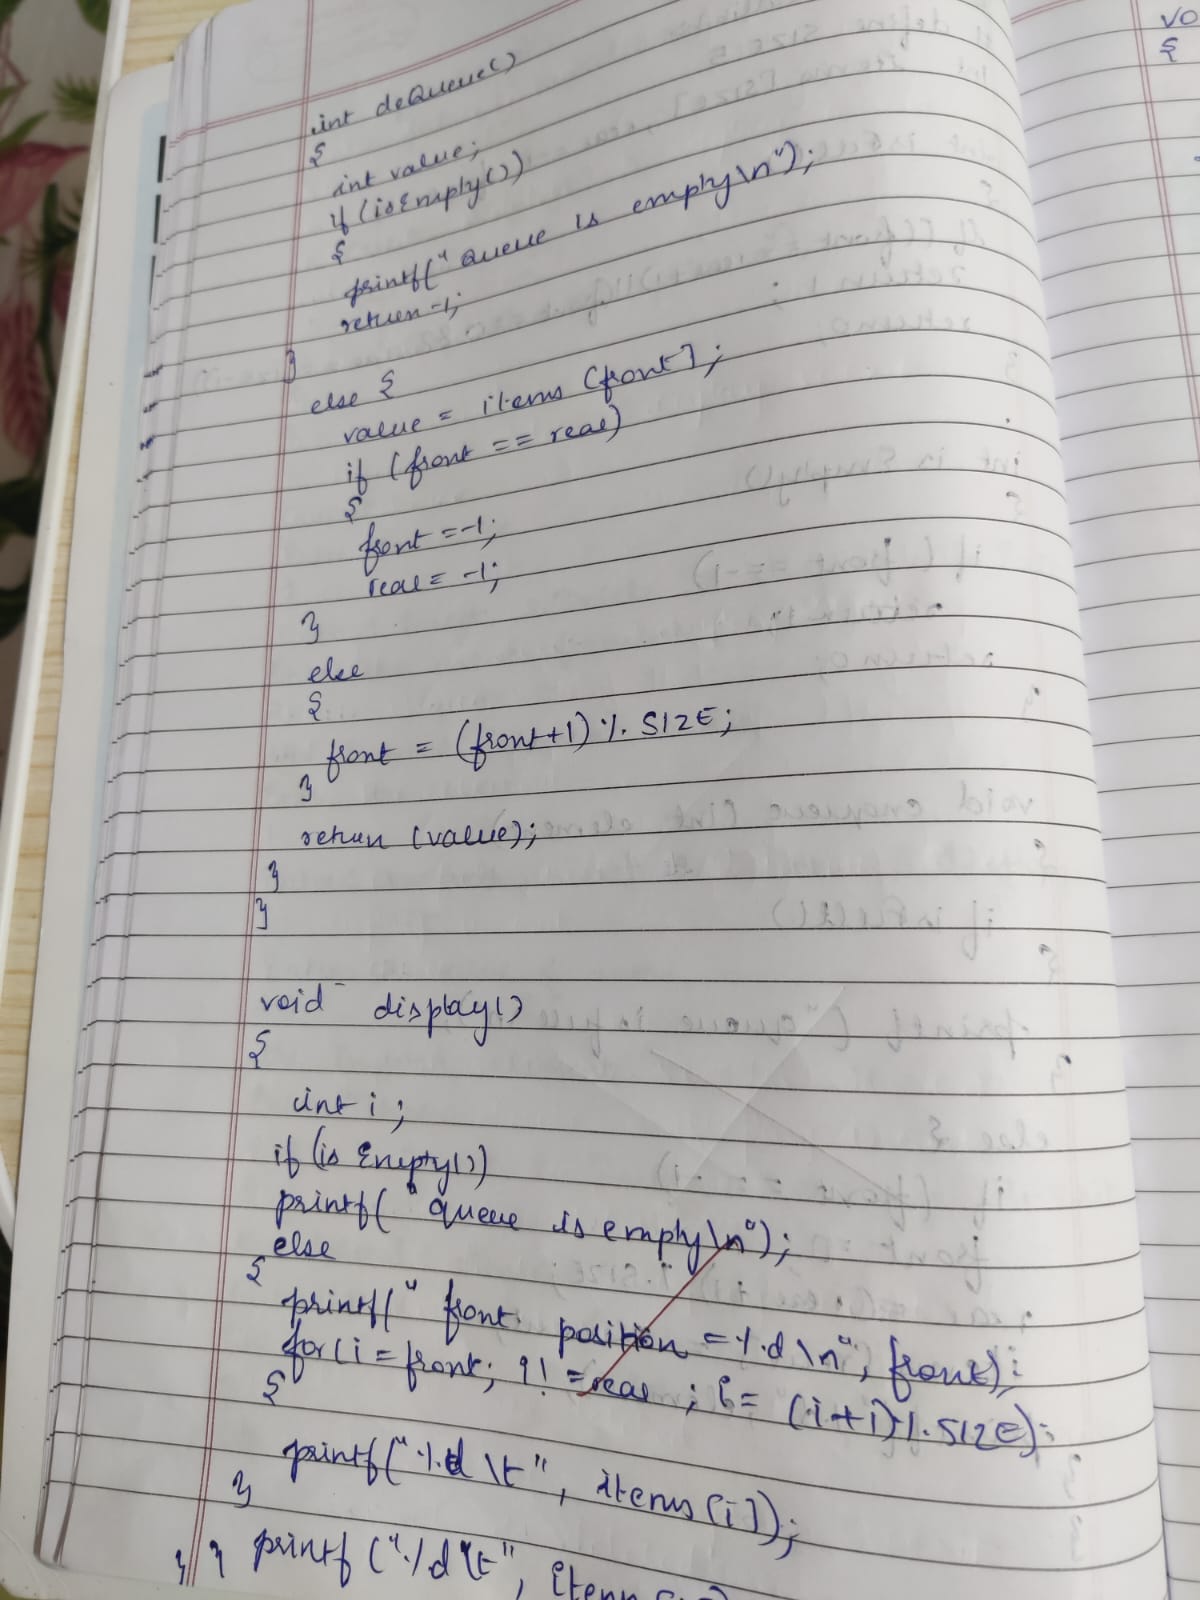 int deQueue()
{
int value;
if (isEmpty())
{
printf("Queue is empty\n");
return -1;
}
else {
value = items [front];
if (front == rear)
{
front = -1;
rear = -1;
}
else
{
front = (front+1) % SIZE;
}
return (value);
}
}
void display()
{
int i;
if (is Empty())
printf("queue is empty\n");
else
{
printf("front position = %d \n", front);
for (i = front; i != rear; i = (i+1) % SIZE);
{
printf("%d \t", items [i]);
}
} } printf ("%d \t",
VO
{